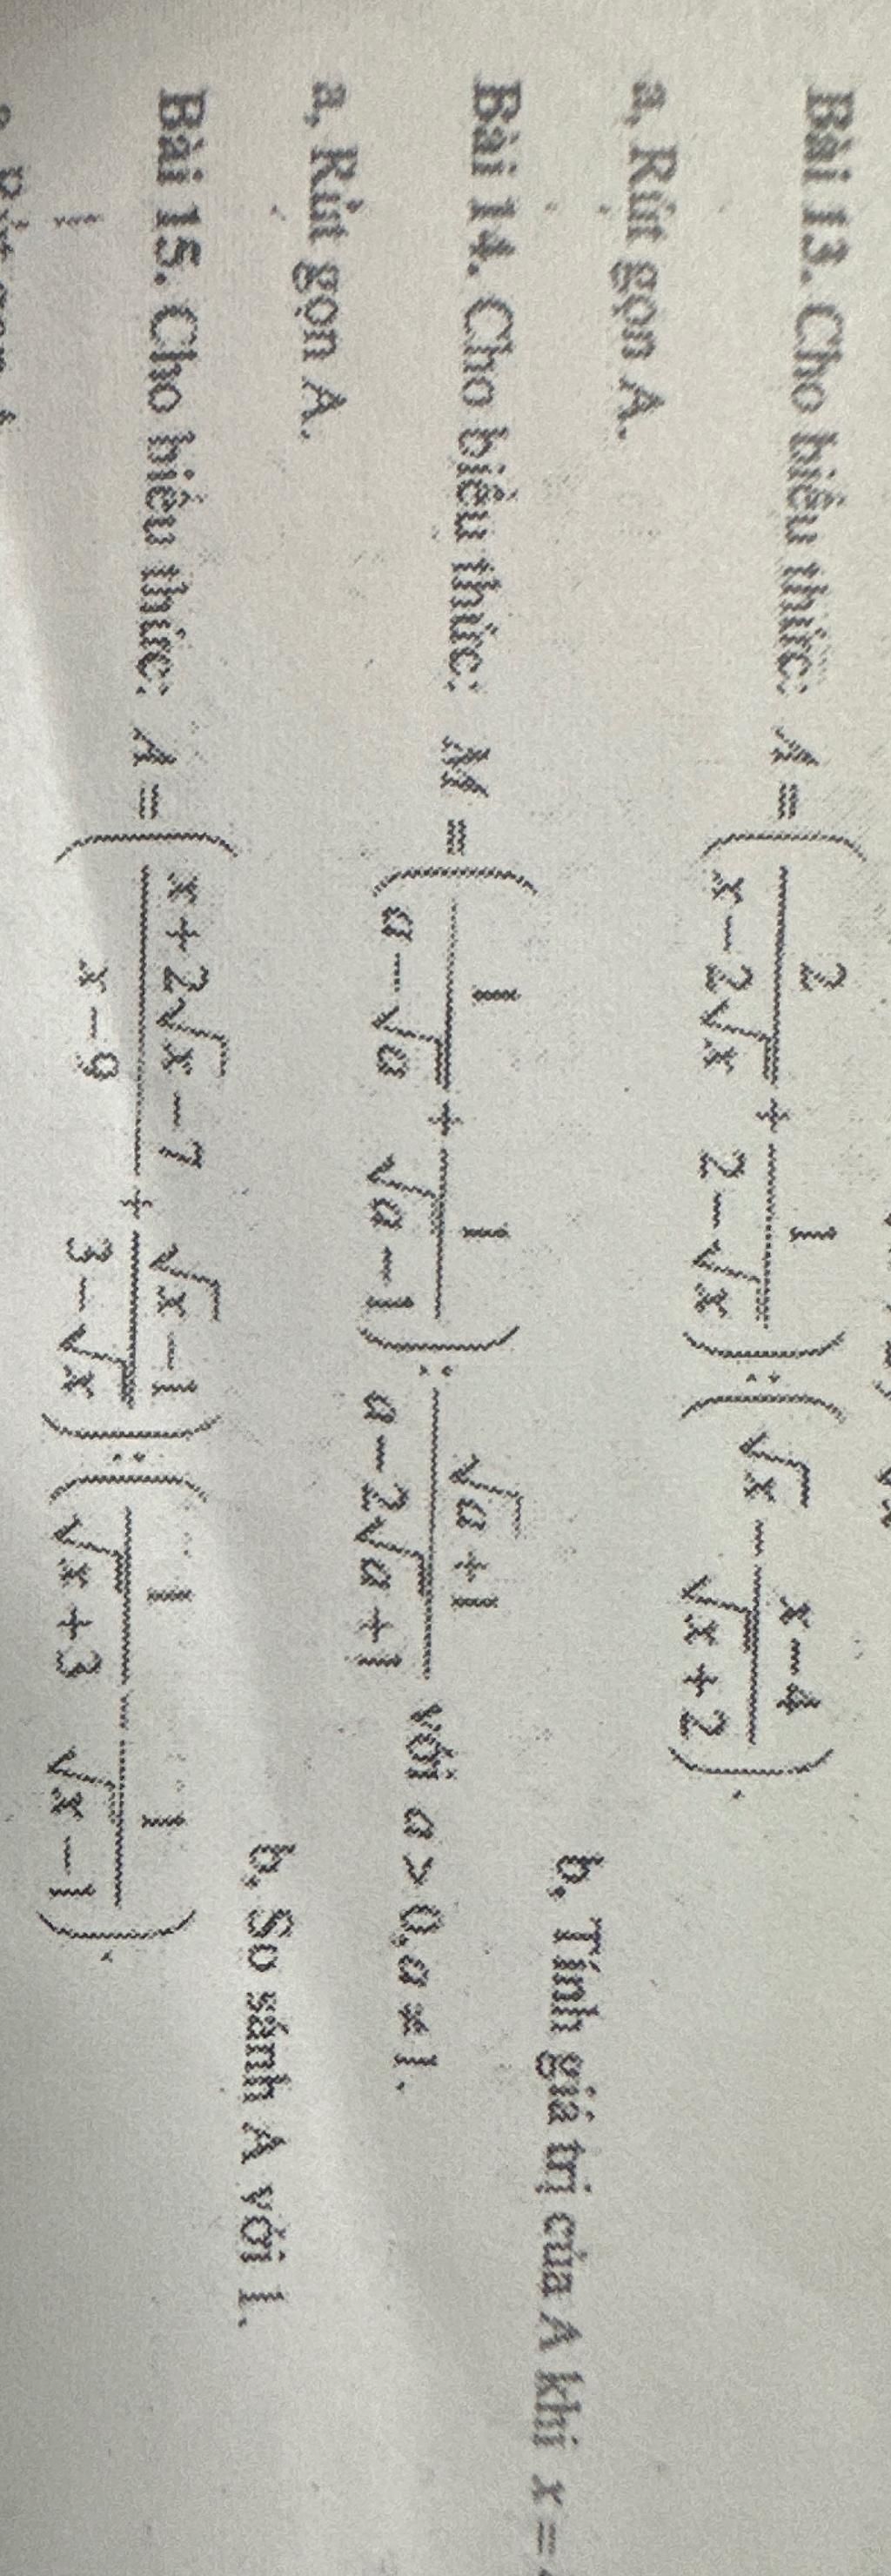 Bài 13. Cho biểu thức: A = (2/(x − 2√x) + 1/(2 − √x)) : (√x − (x − 4)/(√x + 2)).
a, Rút gọn A. b, Tính giá trị của A khi x =
Bài 14. Cho biểu thức: M = (1/(a − √a) + 1/(√a − 1)) : (√a + 1)/(a − 2√a + 1) với a > 0, a ≠ 1.
a, Rút gọn A. b, So sánh A với 1.
Bài 15. Cho biểu thức: A = ((x + 2√x − 7)/(x − 9) + (√x − 1)/(3 − √x)) : (1/(√x + 3) − 1/(√x − 1)).